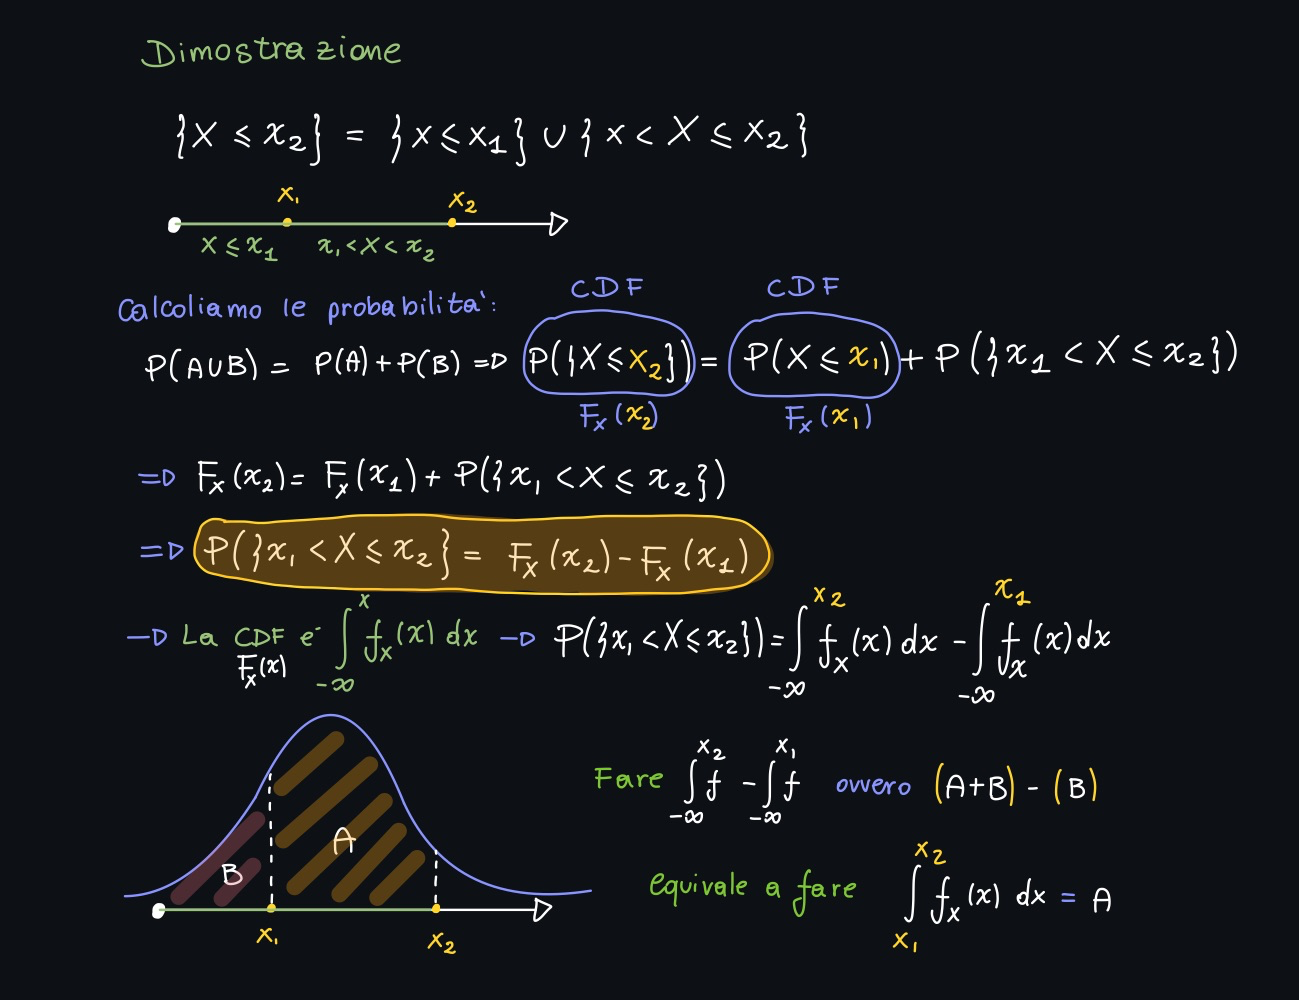 Dimostrazione
{X ≤ x₂} = {x ≤ x₁} ∪ {x < X ≤ x₂}
x₁ x₂
X ≤ x₁ x₁ < X < x₂
CDF CDF
Calcoliamo le probabilita':
P(A∪B) = P(A)+P(B) => P({X ≤ x₂}) = P(X ≤ x₁) + P({x₁ < X ≤ x₂})
Fₓ(x₂) Fₓ(x₁)
=> Fₓ(x₂) = Fₓ(x₁) + P({x₁ < X ≤ x₂})
=> P({x₁ < X ≤ x₂} = Fₓ(x₂) - Fₓ(x₁)
-> La CDF e' ∫_{-∞}^{x} fₓ(x) dx -> P({x₁ < X ≤ x₂}) = ∫_{-∞}^{x₂} fₓ(x) dx - ∫_{-∞}^{x₁} fₓ(x) dx
Fₓ(x)
Fare ∫_{-∞}^{x₂} f - ∫_{-∞}^{x₁} f ovvero (A+B) - (B)
A
B
equivale a fare ∫_{x₁}^{x₂} fₓ(x) dx = A
x₁ x₂